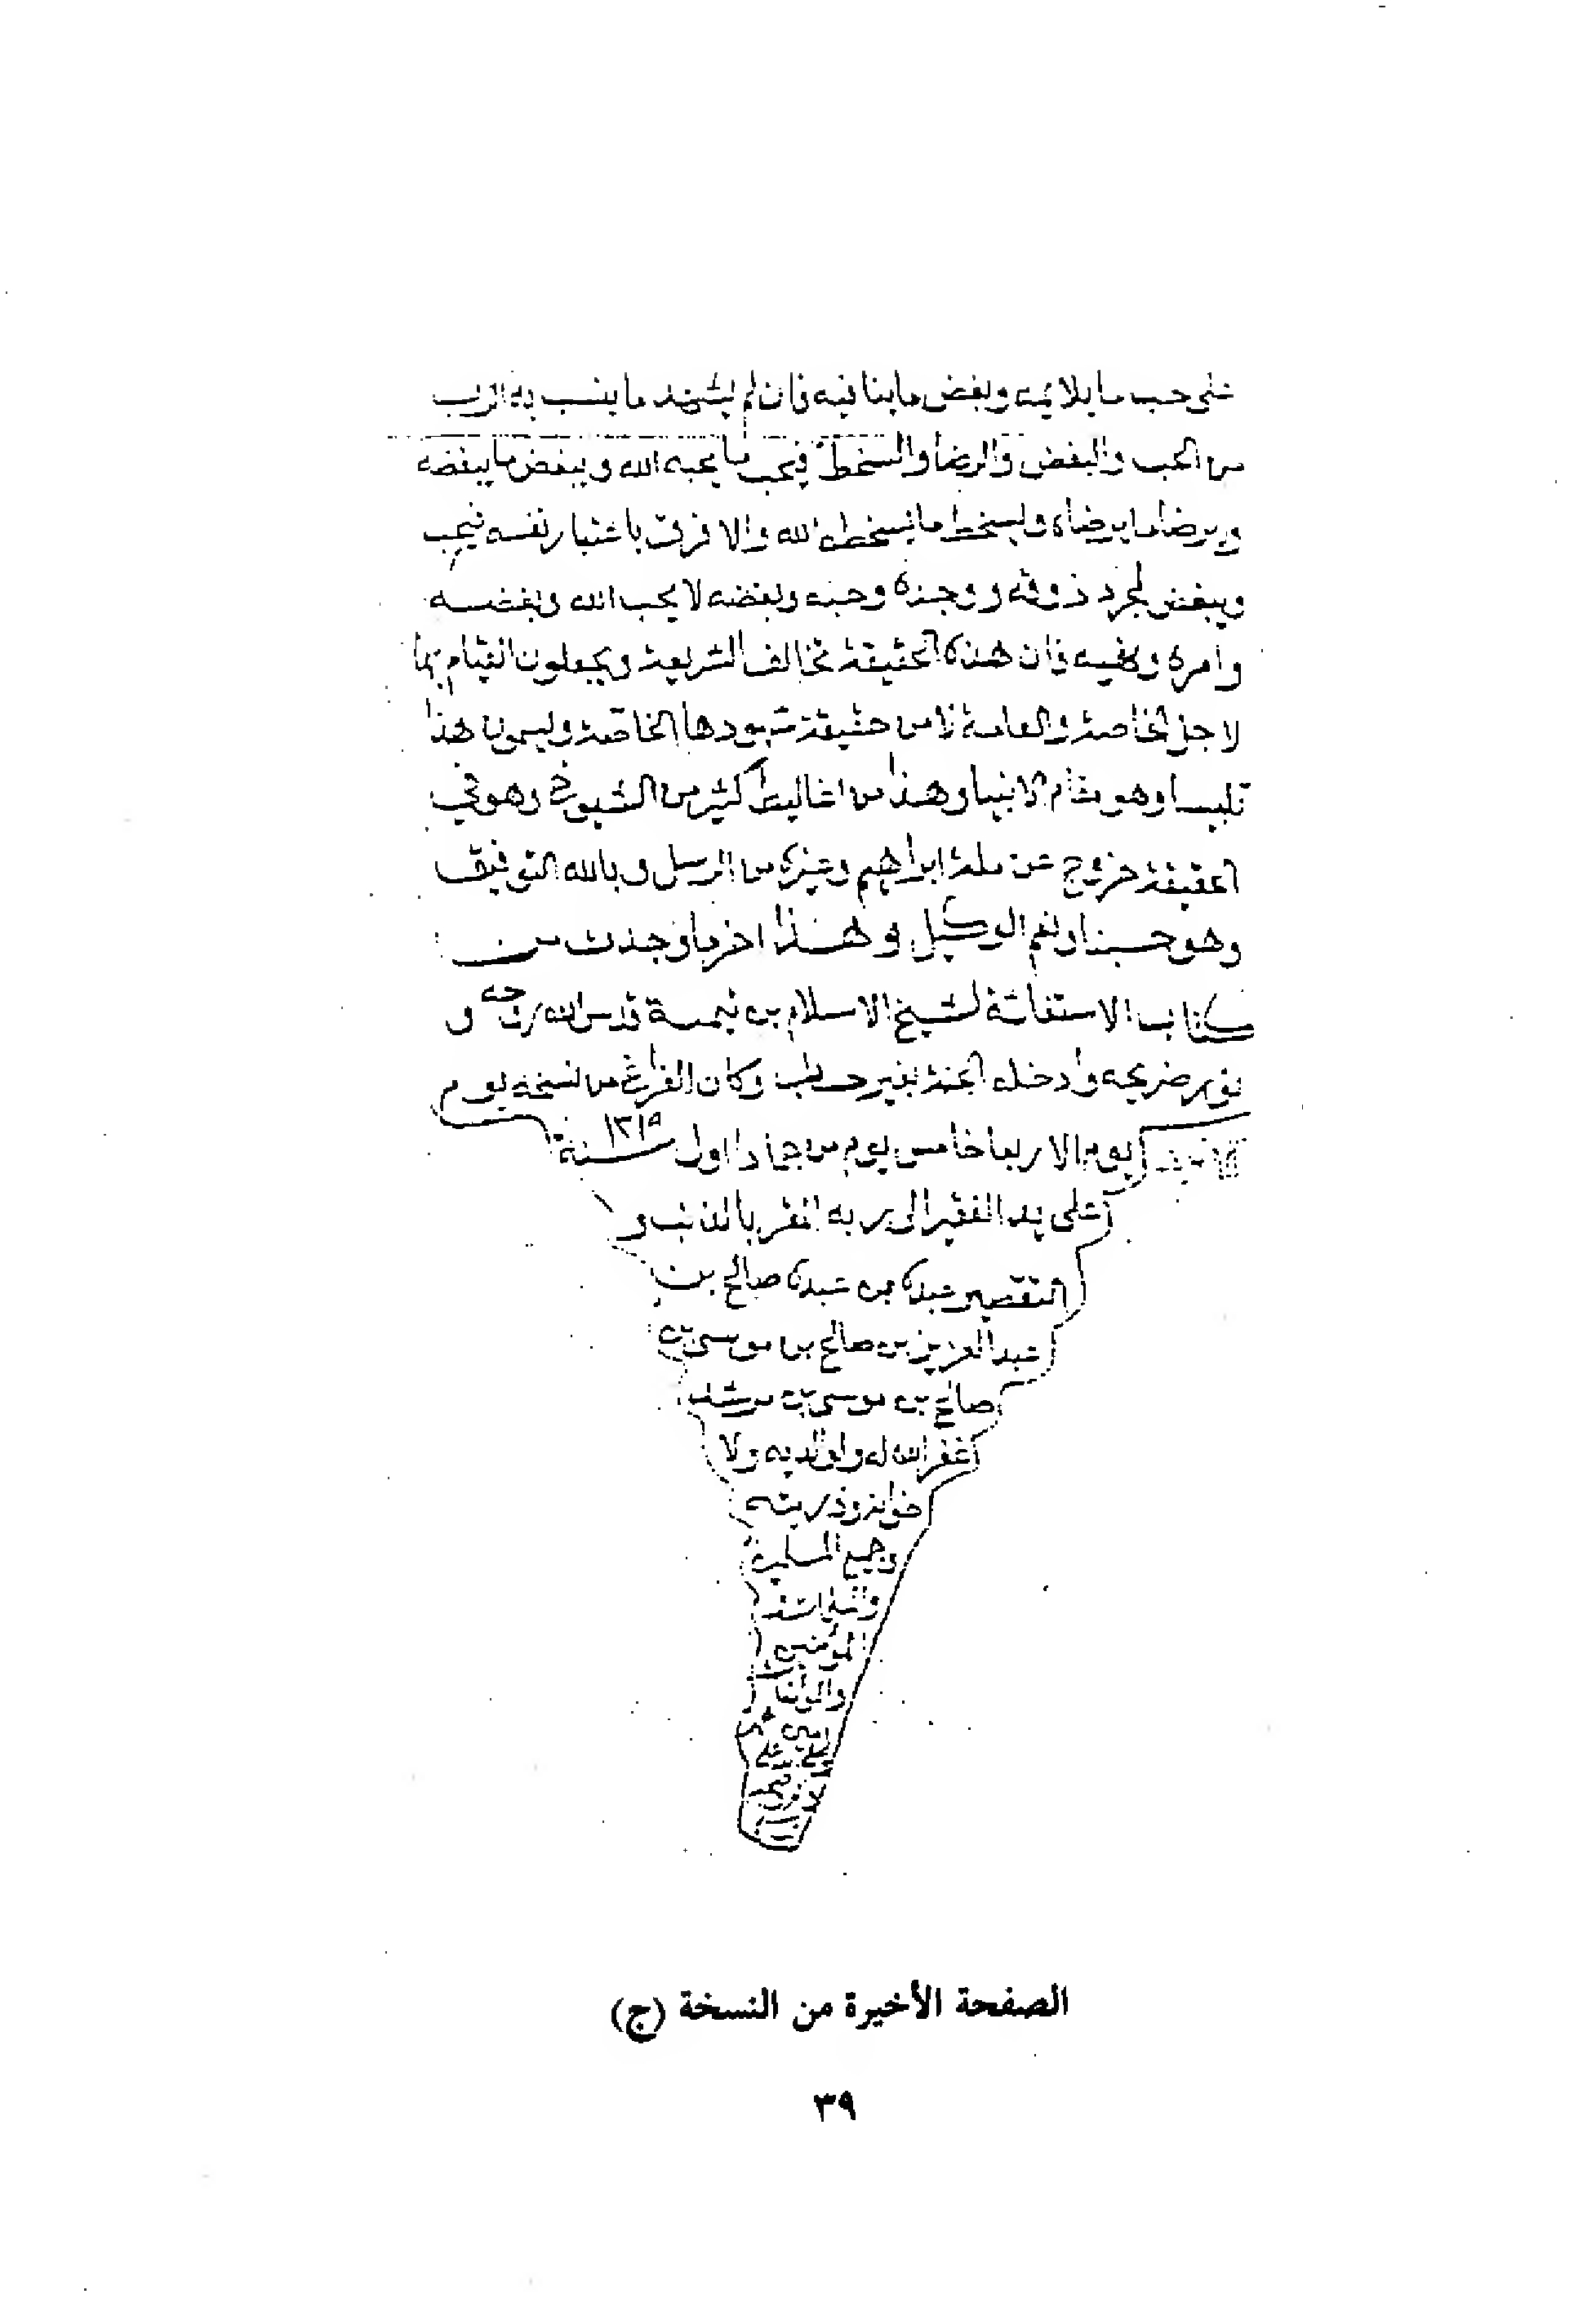 على حب ما يلايمه وبغض ما ينافيه فان لم يشهد ما ينسب به الرب
من الحب والبغض والرضا والسخط فيحب ما يحبه الله ويبغض ما يبغضه
ويرضا ما يرضاه ويسخط ما يسخطه الله والا فرق باعتبار نفسه فيحب
ويبغض لمجرد ذوقه ووجده وحبه وبغضه لا بحب الله وبغضه
وامره ونهيه فان هذه الحقيقة تخالف الشريعة ويجعلون القيام بها
لاجل الخاصة والعامة حقيقة شهودها الخاصة ويسمون هذا
تلبيسا وهو مقام الانبيا وهذا من اغاليط كثير من الشيوخ وهو في
الحقيقة خروج عن ملة ابراهيم وغيره من الرسل وبالله التوفيق
وهو حسبنا ونعم الوكيل وهذا اخر ما وجدت من
كتاب الاستغاثة لشيخ الاسلام بن تيمية قدس الله روحه و
نور ضريحه وادخله الجنة بغير حساب وكان الفراغ من نسخه يوم
يوم الاربعا خامس يوم من جمادا اول سنة ١٣١٩
على يد الفقير الى ربه المقر بالذنب و
التقصير عبده بن عبده صالح بن
عبد العزيز بن صالح بن موسى بن
صالح بن موسى بن مرشد
غفر الله له ولوالديه ولا
خوانه وذريته
وجميع المسلمين

المؤمنين
الصفحة الأخيرة من النسخة (ج)
٣٩